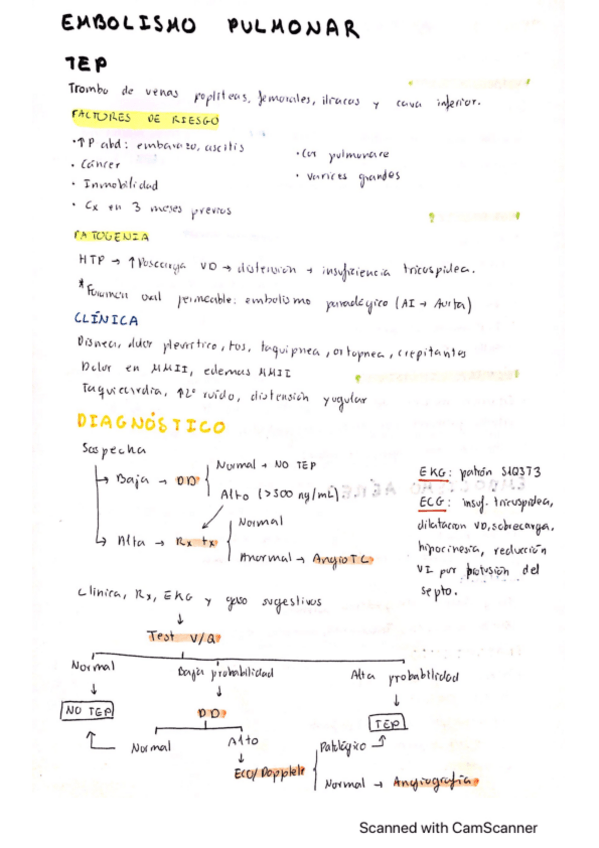 EMBOLISMO PULMONAR
TEP
Trombo de venas poplíteas, femorales, iliacas y cava inferior.
FACTORES DE RIESGO
·↑P abd: embarazo, ascitis
· Cáncer
· Inmobilidad
· Cx en 3 meses previos
· Cor pulmonare
· Varices grandes
PATOGENIA
HTP → ↑Poscarga VD → distension → insuficiencia tricuspidea.
*Foramen oval permeable: embolismo paradógico (AI → Aorta)
CLÍNICA
Disnea, dolor pleurítico, tos, taquipnea, ortopnea, crepitantes
Dolor en MMII, edemas MMII
Taquicardia, ↑2º ruido, distensión yugular
DIAGNÓSTICO
Sospecha
Baja → DD
Normal → NO TEP
Alto (>500 ng/mL)
Alta → Rx tx
Normal
Anormal → AngioTC
EKG: patrón S1Q3T3
ECG: insuf. tricuspidea,
dilatacion VD, sobrecarga,
hipocinesia, reducción
VI por protusión del
septo.
Clinica, Rx, EKG y gaso sugestivos
↓
Test V/Q
Normal
↓
NO TEP
Baja probabilidad
↓
DD
Alta probabilidad
↓
TEP
Normal
Alto
↓
ECO/Doppler
Patológico
Normal → Angiografía
Scanned with CamScanner